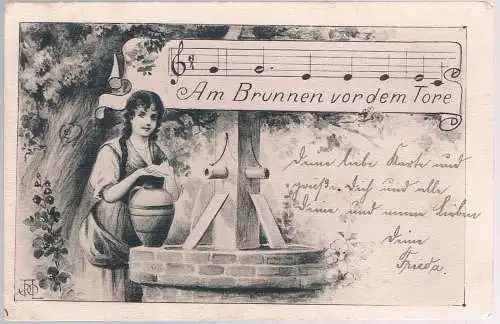 Am Brunnen vor dem Tore
Deine liebe Karte und
grüße Dich und alle
Deine und meine Lieben
Deine
Frieda.